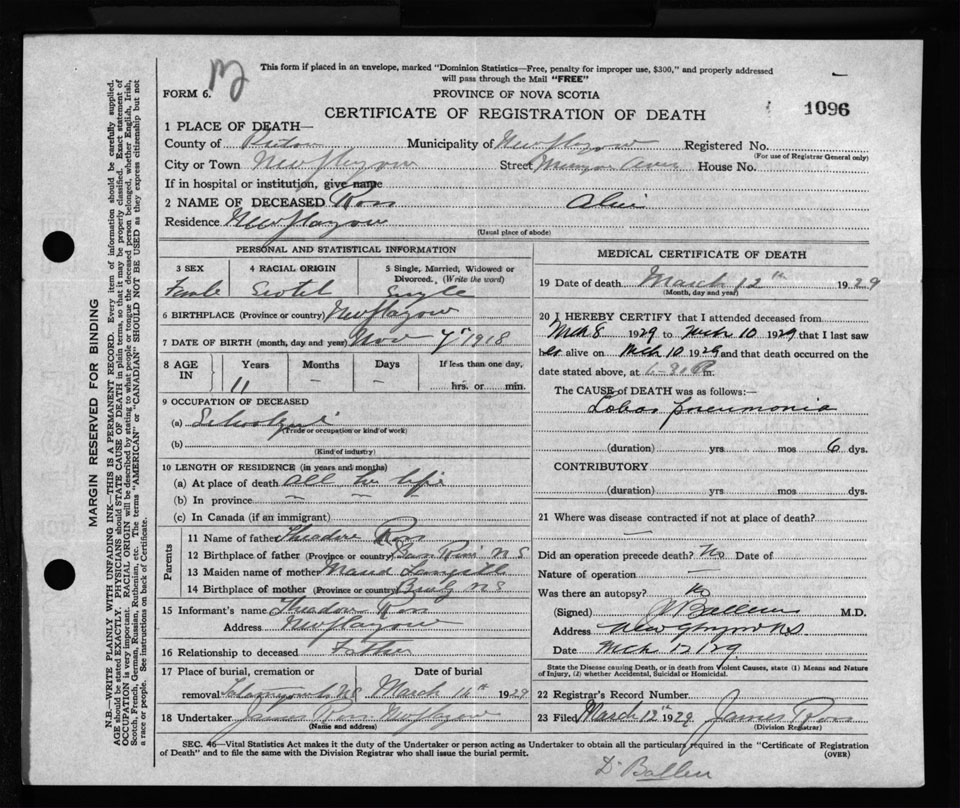 This form if placed in an envelope, marked "Dominion Statistics—Free, penalty for improper use, $300," and properly addressed
will pass through the Mail "FREE"
FORM 6.
PROVINCE OF NOVA SCOTIA
CERTIFICATE OF REGISTRATION OF DEATH
1096
1 PLACE OF DEATH—
County of Pictou Municipality of New Glasgow Registered No.
(For use of Registrar General only)
City or Town New Glasgow Street House No.
If in hospital or institution, give name
2 NAME OF DECEASED Ross
Residence New Glasgow
(Usual place of abode)
PERSONAL AND STATISTICAL INFORMATION
3 SEX 4 RACIAL ORIGIN 5 Single, Married, Widowed or Divorced. (Write the word)
Female Scotch Single
6 BIRTHPLACE (Province or country) New Glasgow
7 DATE OF BIRTH (month, day and year) Nov 7th 1918
8 AGE IN Years Months Days If less than one day,
11 — — hrs. or min.
9 OCCUPATION OF DECEASED
(a) Schoolgirl
(Trade or occupation or kind of work)
(b)
(Kind of industry)
10 LENGTH OF RESIDENCE (in years and months)
(a) At place of death all her life
(b) In province — —
(c) In Canada (if an immigrant)
Parents
11 Name of father Theodore Ross
12 Birthplace of father (Province or country) N S
13 Maiden name of mother Maud Langille
14 Birthplace of mother (Province or country) N S
15 Informant's name Theodore Ross
Address New Glasgow
16 Relationship to deceased Father
17 Place of burial, cremation or Date of burial
removal N S March 14th 1929
18 Undertaker James Ross New Glasgow
(Name and address)
MEDICAL CERTIFICATE OF DEATH
19 Date of death March 12th 1929
(Month, day and year)
20 I HEREBY CERTIFY that I attended deceased from
Mch 8 1929 to Mch 10 1929 that I last saw
her alive on Mch 10 1929 and that death occurred on the
date stated above, at 6-30 P m.
The CAUSE OF DEATH was as follows:
Lobar pneumonia
(duration) yrs mos 6 dys.
CONTRIBUTORY
(duration) yrs mos dys.
21 Where was disease contracted if not at place of death?
—
Did an operation precede death? No Date of
Nature of operation —
Was there an autopsy? No
(Signed) M.D.
Address New Glasgow N S
Date Mch 12/29
State the Disease causing Death, or in death from Violent Causes, state (1) Means and Nature
of Injury, (2) whether Accidental, Suicidal or Homicidal.
22 Registrar's Record Number
23 Filed March 12th 1929 James Ross
(Division Registrar)
SEC. 46—Vital Statistics Act makes it the duty of the Undertaker or person acting as Undertaker to obtain all the particulars required in the "Certificate of Registration
of Death" and to file the same with the Division Registrar who shall issue the burial permit.
(OVER)
MARGIN RESERVED FOR BINDING
N.B.—WRITE PLAINLY WITH UNFADING INK—THIS IS A PERMANENT RECORD. Every item of information should be carefully supplied.
AGE should be stated EXACTLY. PHYSICIANS should STATE CAUSE OF DEATH in plain terms, so that it may be properly classified. Exact statement of
OCCUPATION is very important. RACIAL ORIGIN will be described by stating to what people or tongue the deceased person belonged, whether English, Irish,
Scotch, French, German, Russian, Ruthenian, etc. The terms "AMERICAN" or "CANADIAN" SHOULD NOT BE USED as they express citizenship but not
a race or people. See instructions on back of Certificate.